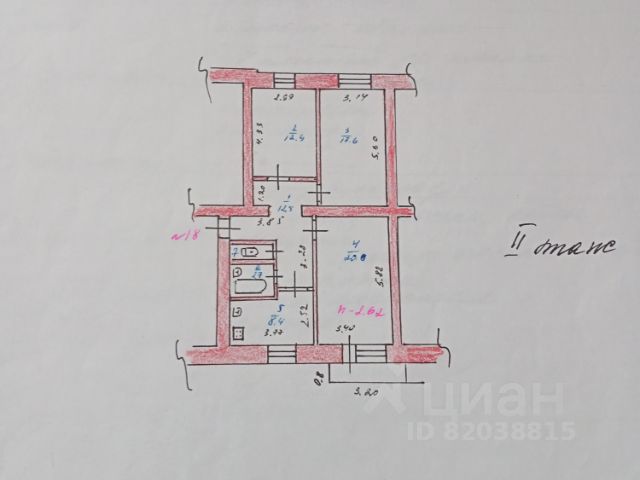 2.99
3.14
4.33
2
12.4
3
17.6
5.60
1.20
1
12.5
3.85
№18
7
6
2.7
3.20
4
20.0
5.82
5
8.4
2.52
3.77
h-2.62
3.40
0,8
3.20
II этаж
циан
ID 82038815